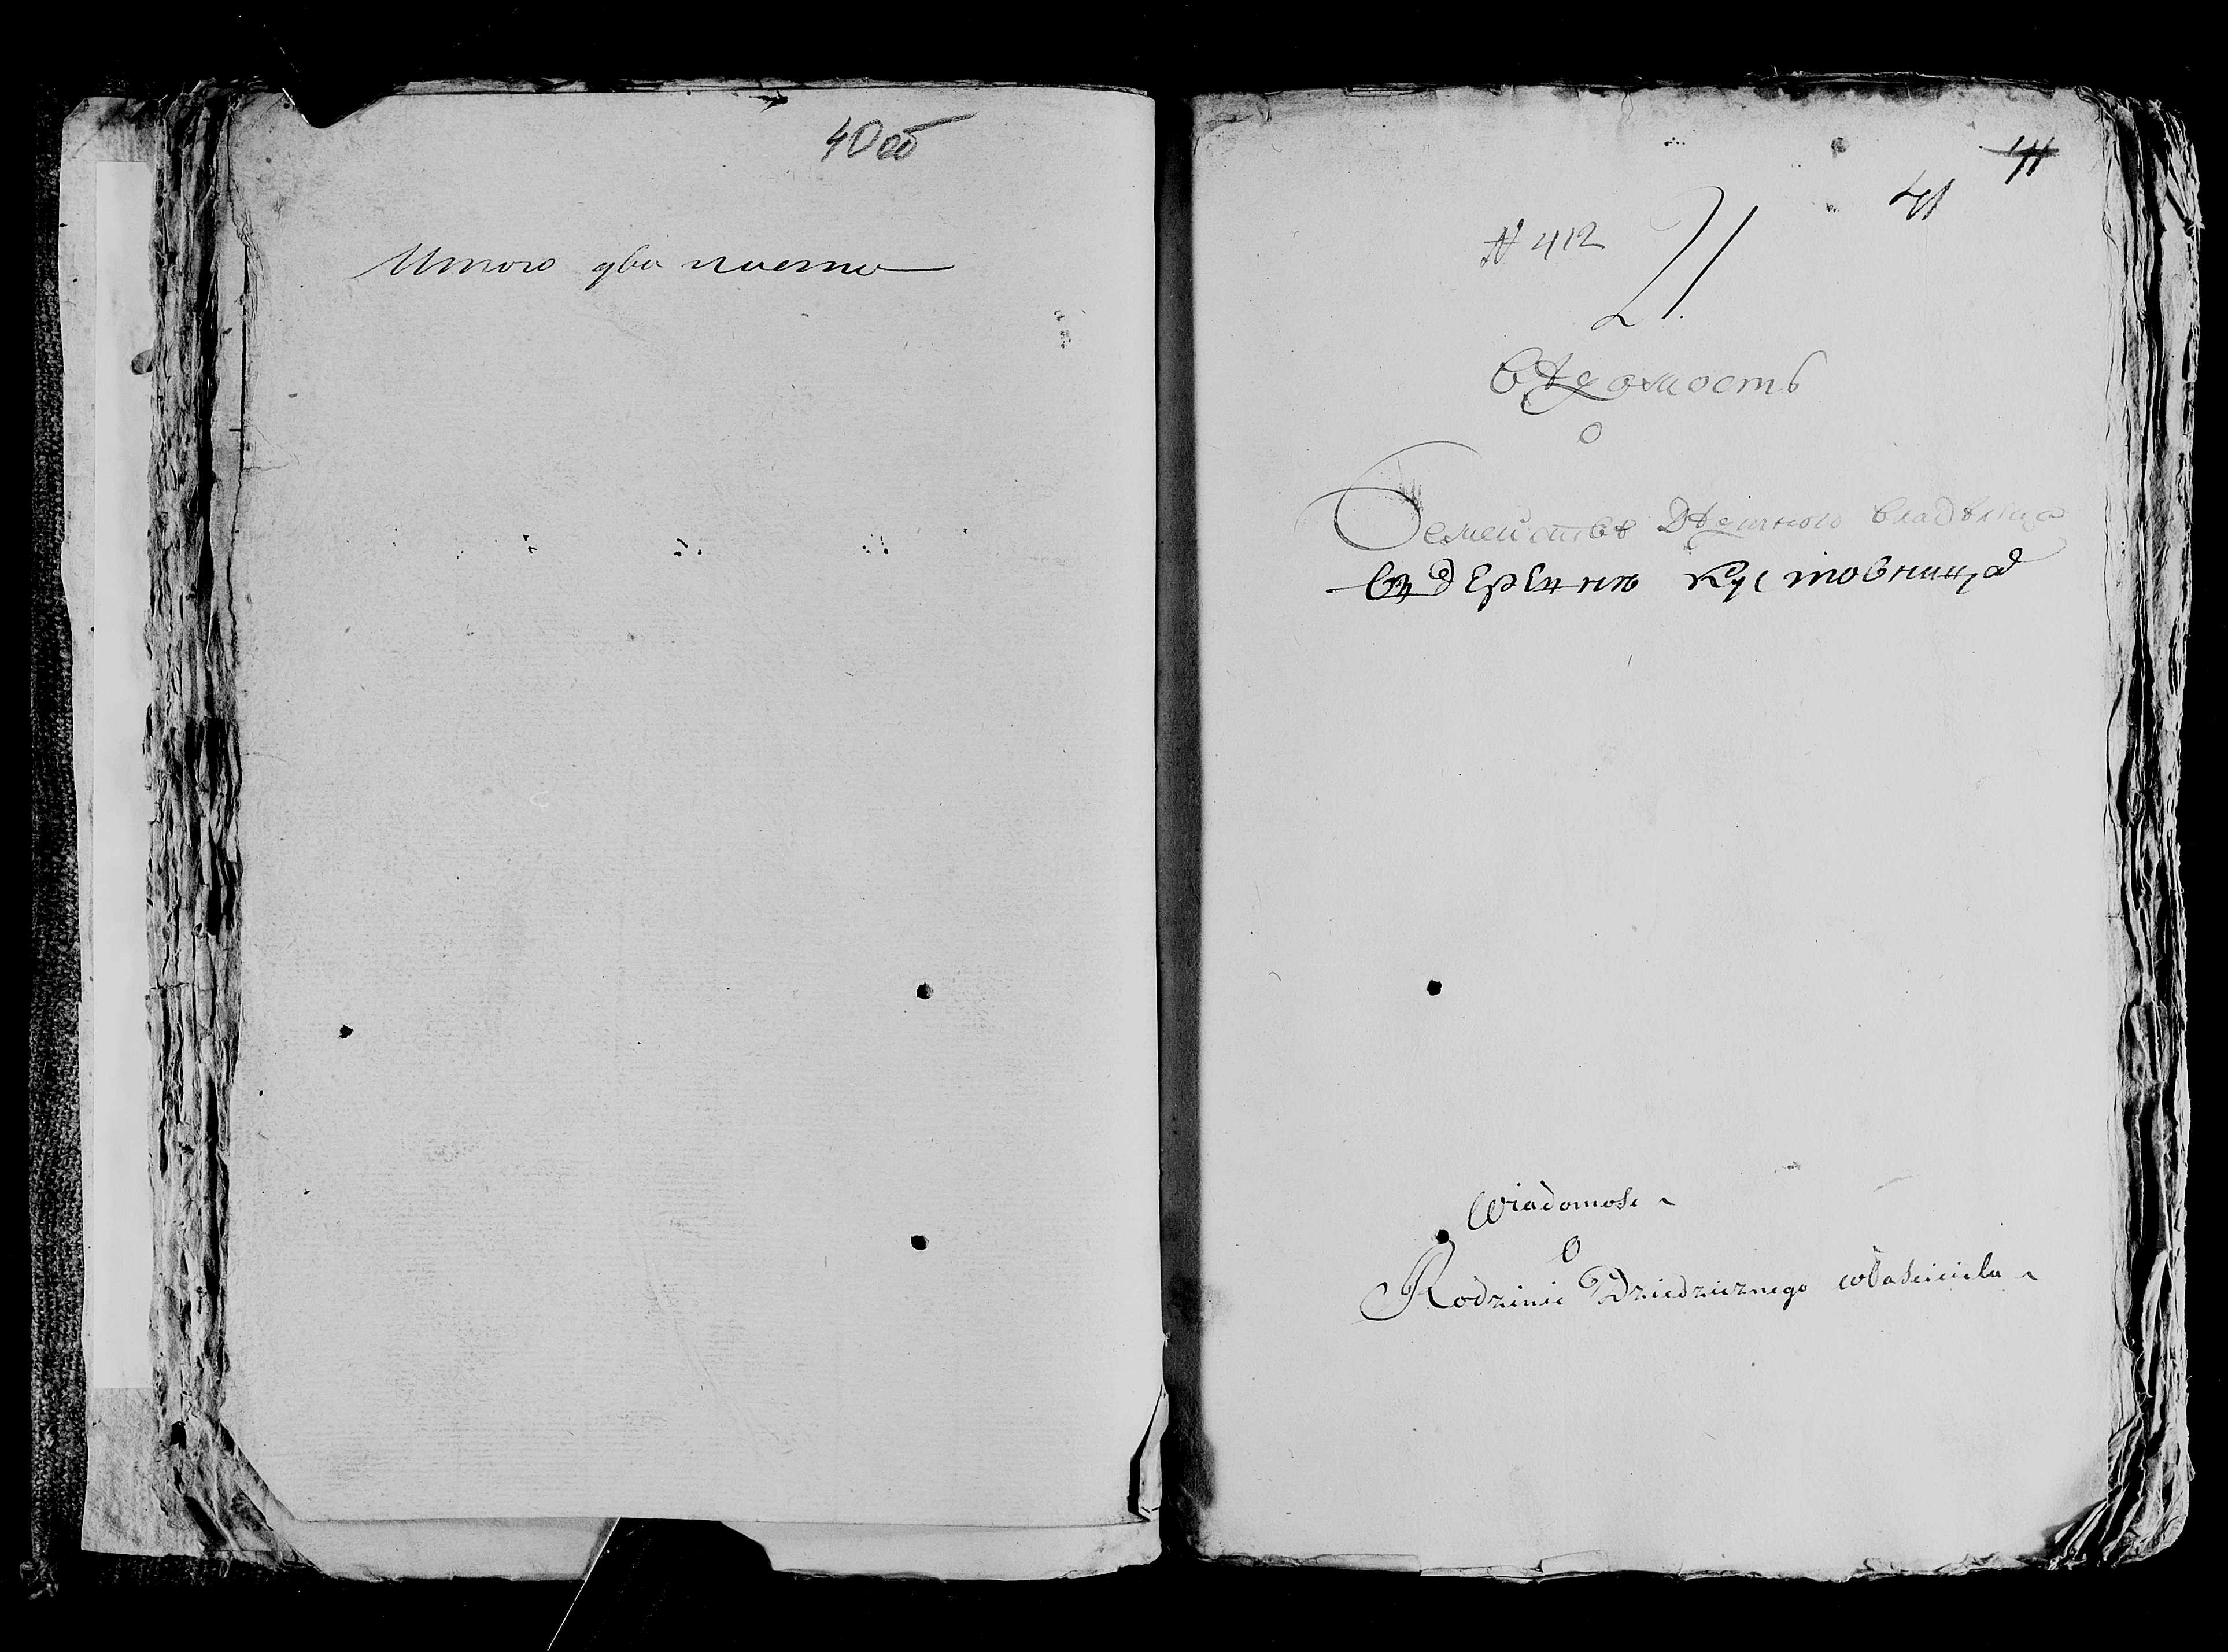 40 об
Итого два листа
41
41
№ 412
21.
Вѣдомость
О
Семействѣ Дѣдичного владѣльца
въ деревнѣ Кустовница
Wiadomość
O
Rodzinie Dziedzicznego właściciela